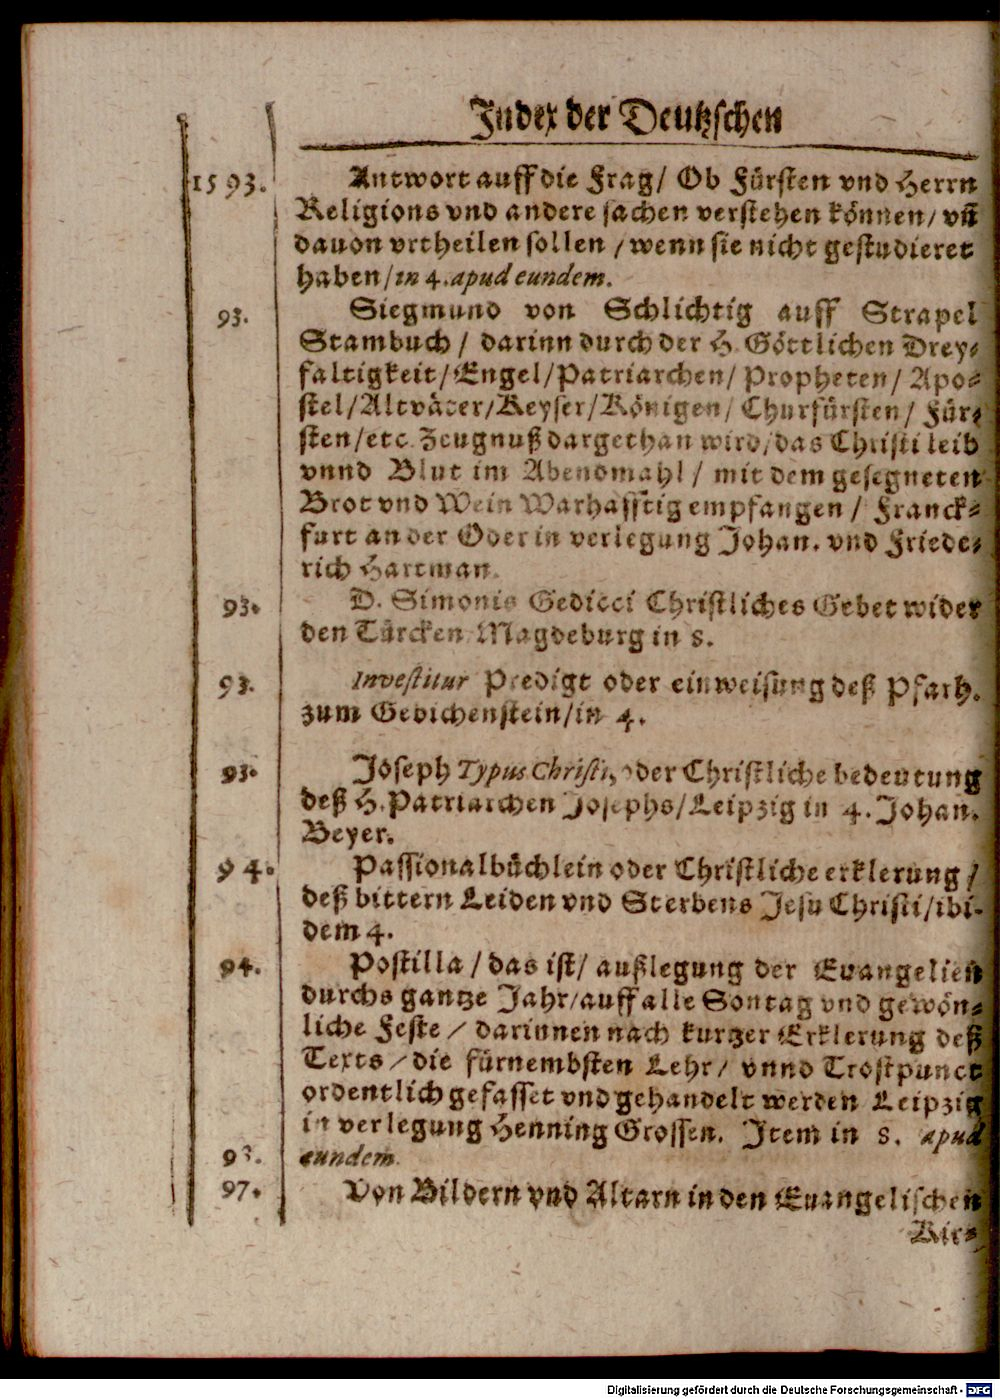 Index der Deutzschen
1593. Antwort auff die Frag/ Ob Fürsten vnd Herrn
Religions vnd andere sachen verstehen können/ vñ
dauon vrtheilen sollen / wenn sie nicht gestudieret
haben/in 4. apud eundem.
93. Siegmund von Schlichtig auff Strapel
Stambuch / darinn durch der H. Göttlichen Drey-
faltigkeit/Engel/Patriarchen/ Propheten/ Apo-
stel/Altväter/Keyser/Königen/ Churfürsten/ Für-
sten/etc. Zeugnuß dargethan wird/das Christi leib
vnnd Blut im Abendmahl / mit dem gesegneten
Brot vnd Wein Warhafftig empfangen / Franck-
furt an der Oder in verlegung Johan. vnd Friede-
rich Hartman.
93. D. Simonis Gedicci Christliches Gebet wider
den Türcken Magdeburg in 8.
93. Investitur Predigt oder einweisung deß Pfarh.
zum Gebichenstein/in 4.
93. Joseph Typus Christi, oder Christliche bedeutung
deß H. Patriarchen Josephs/Leipzig in 4. Johan.
Beyer.
94. Passionalbüchlein oder Christliche erklerung /
deß bittern Leiden vnd Sterbens Jesu Christi/ibi-
dem 4.
94. Postilla / das ist/ außlegung der Euangelien
durchs gantze Jahr/auff alle Sontag vnd gewön-
liche Feste / darinnen nach kurtzer Erklerung deß
Texts / die fürnembsten Lehr/ vnnd Trostpunct
ordentlich gefasset vnd gehandelt werden Leipzig
in verlegung Henning Grossen. Item in 8. apud
93. eundem.
97. Von Bildern vnd Altarn in den Euangelischen
Kir-
Digitalisierung gefördert durch die Deutsche Forschungsgemeinschaft - DFG